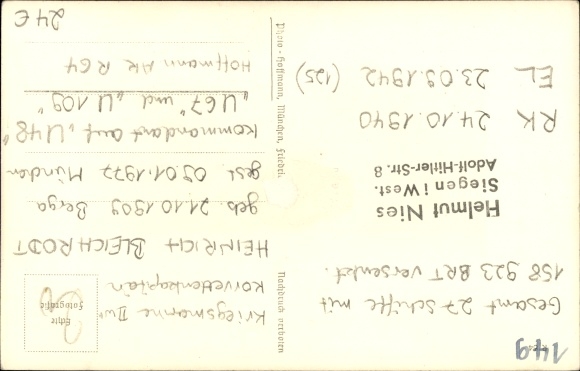 149
Gesamt 27 Schiffe mit
158 923 BRT versenkt.
Helmut Nies
Siegen i West.
Adolf-Hitler-Str. 8
RK 24.10.1940
EL 23.09.1942 (125)
Nachdruck verboten
Photo-Hoffmann, München,
Echte
Fotografie
Kriegsmarine II
Korvettenkapitän
HEINRICH BLEICHRODT
geb. 21.10.1909 Berga
gest. 09.01.1977 München
Kommandant auf „U 48“
„U 67“ und „U 109“
Hoffmann AK R 64
24 €